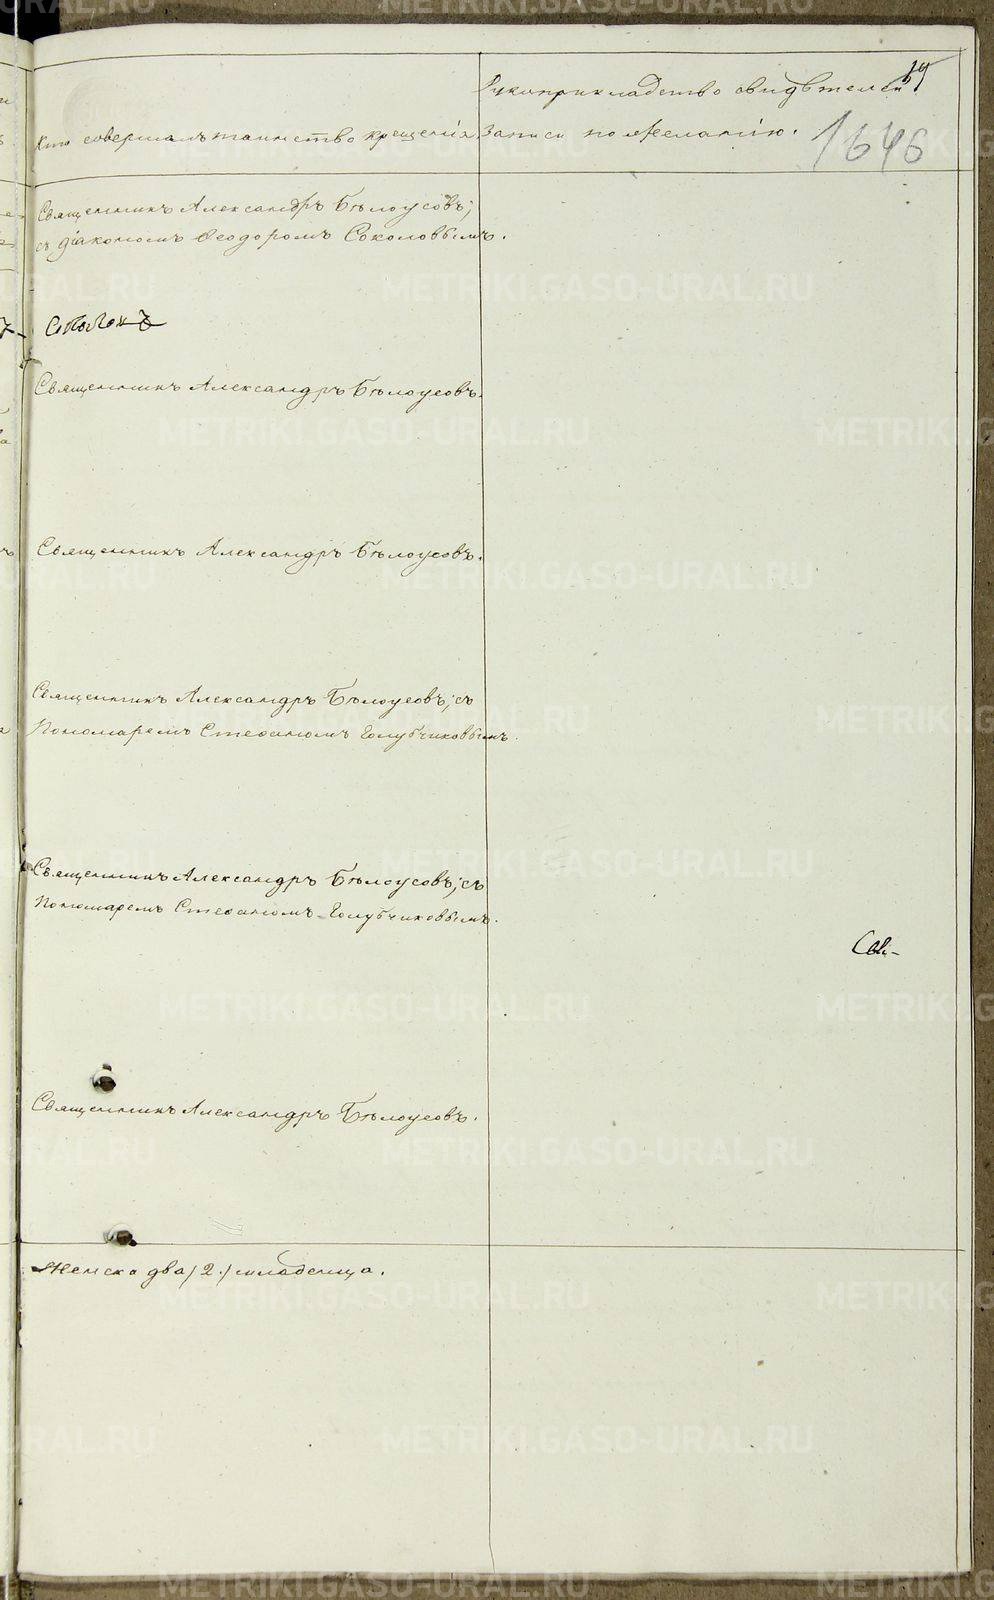 Рукоприкладство свидѣтелей
Кто совершалъ таинство крещенія
записи по желанію.
1646
Священникъ Александръ Бѣлоусовъ;
съ діакономъ Ѳеодоромъ Соколовымъ.
Священникъ Александръ Бѣлоусовъ.
Священникъ Александръ Бѣлоусовъ.
Священникъ Александръ Бѣлоусовъ; съ
Пономаремъ Стефаномъ Голубчиковымъ.
Священникъ Александръ Бѣлоусовъ; съ
Пономаремъ Стефаномъ Голубчиковымъ.
Свя-
Священникъ Александръ Бѣлоусовъ.
Женска два /2./ младенца.
METRIKI.GASO-URAL.RU